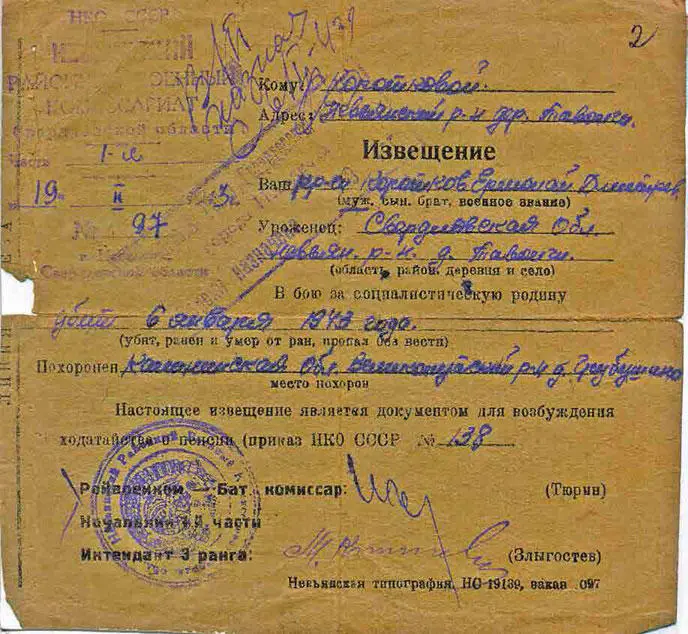 НКО СССР
РАЙОННЫЙ ВОЕННЫЙ
КОМИССАРИАТ
Свердловской области
Часть 1-я
19. II 43
№ 97
г. Невьянск
Свердловской области
2
Кому Коротковой
Адрес Невьянский р-н дер. Таволги.
Извещение
Ваш Коротков
(муж, сын, брат, военное звание)
Уроженец: Свердловская Обл.
Невьян. р-н. д. Таволги.
(область, район, деревня и село)
В бою за социалистическую родину
убит 6 января 1943 года.
(убит, ранен и умер от ран, пропал без вести)
Похоронен Калининская Обл. р-н д.
место похорон
Настоящее извещение является документом для возбуждения
ходатайства о пенсии (приказ НКО СССР № 138
Райвоенком — Бат. комиссар:
(Тюрин)
Начальник 1-й части
Интендант 3 ранга:
(Злыгостев)
Невьянская типография, НС-19139, заказ 097
ЛИНИЯ